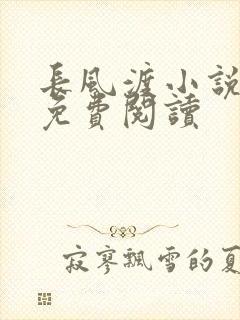 長風渡小説
免費閱讀
寂寥飄雪的夏